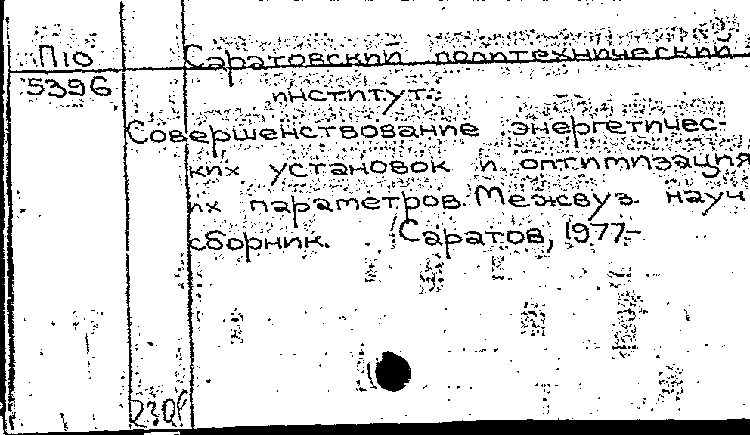 П10 Саратовский политехнический
5396 институт.
Совершенствование энергетичес-
ких установок и оптимизация
их параметров. Межвуз. науч
сборник. Саратов, 1977-